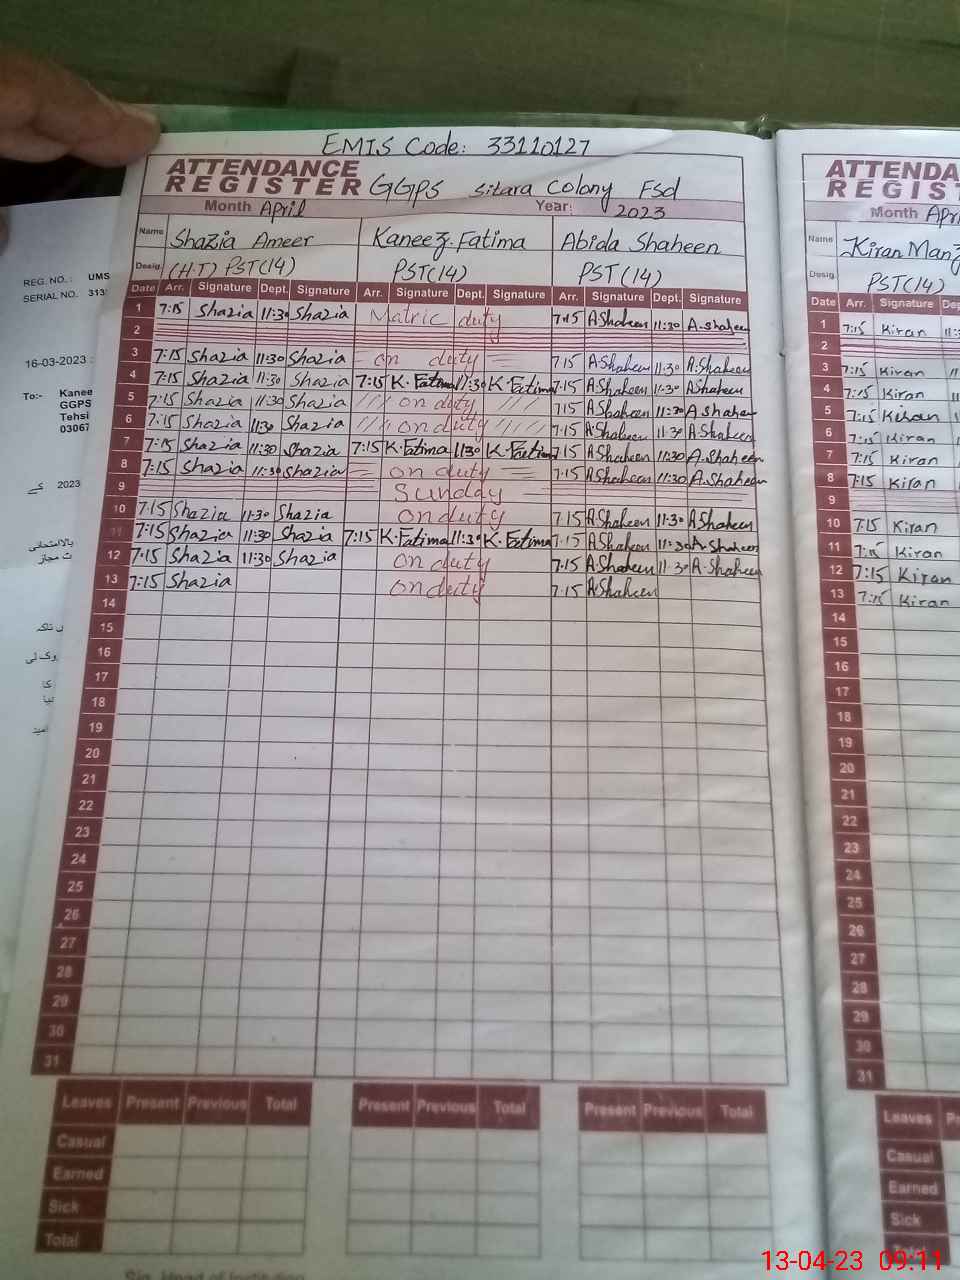 EMIS Code: 33110127
ATTENDANCE
REGISTER GGPS Sitara Colony Fsd
Month April Year: 2023
Name Shazia Ameer Kaneez Fatima Abida Shaheen
Desig. (H.T) PST(14) PST(14) PST(14)
Date Arr. Signature Dept. Signature Arr. Signature Dept. Signature Arr. Signature Dept. Signature
1 7:15 Shazia 11:30 Shazia Matric duty 7:15 A.Shaheen 11:30 A.Shaheen
2
3 7:15 Shazia 11:30 Shazia on duty 7:15 A.Shaheen 11:30 A.Shaheen
4 7:15 Shazia 11:30 Shazia 7:15 K.Fatima 11:30 K.Fatima 7:15 A.Shaheen 11:30 A.Shaheen
5 7:15 Shazia 11:30 Shazia on duty 7:15 A.Shaheen 11:30 A.Shaheen
6 7:15 Shazia 11:30 Shazia on duty 7:15 A.Shaheen 11:30 A.Shaheen
7 7:15 Shazia 11:30 Shazia 7:15 K.Fatima 11:30 K.Fatima 7:15 A.Shaheen 11:30 A.Shaheen
8 7:15 Shazia 11:30 Shazia on duty 7:15 A.Shaheen 11:30 A.Shaheen
9 Sunday
10 7:15 Shazia 11:30 Shazia on duty 7:15 A.Shaheen 11:30 A.Shaheen
11 7:15 Shazia 11:30 Shazia 7:15 K.Fatima 11:30 K.Fatima 7:15 A.Shaheen 11:30 A.Shaheen
12 7:15 Shazia 11:30 Shazia on duty 7:15 A.Shaheen 11:30 A.Shaheen
13 7:15 Shazia on duty 7:15 A.Shaheen
14
15
16
17
18
19
20
21
22
23
24
25
26
27
28
29
30
31
Leaves Present Previous Total Present Previous Total Present Previous Total
Casual
Earned
Sick
Total
ATTENDA
REGIST
Month Apri
Name Kiran Manz
Desig. PST(14)
Date Arr. Signature
1 7:15 Kiran
2
3 7:15 Kiran
4 7:15 Kiran
5 7:15 Kiran
6 7:15 Kiran
7 7:15 Kiran
8 7:15 Kiran
9
10 7:15 Kiran
11 7:15 Kiran
12 7:15 Kiran
13 7:15 Kiran
14
15
16
17
18
19
20
21
22
23
24
25
26
27
28
29
30
31
Leaves
Casual
Earned
Sick
REG. NO. : UMS
SERIAL NO. 313
16-03-2023 :
To:- Kanee
GGPS
Tehsi
03067
2023 کے
13-04-23 09:11